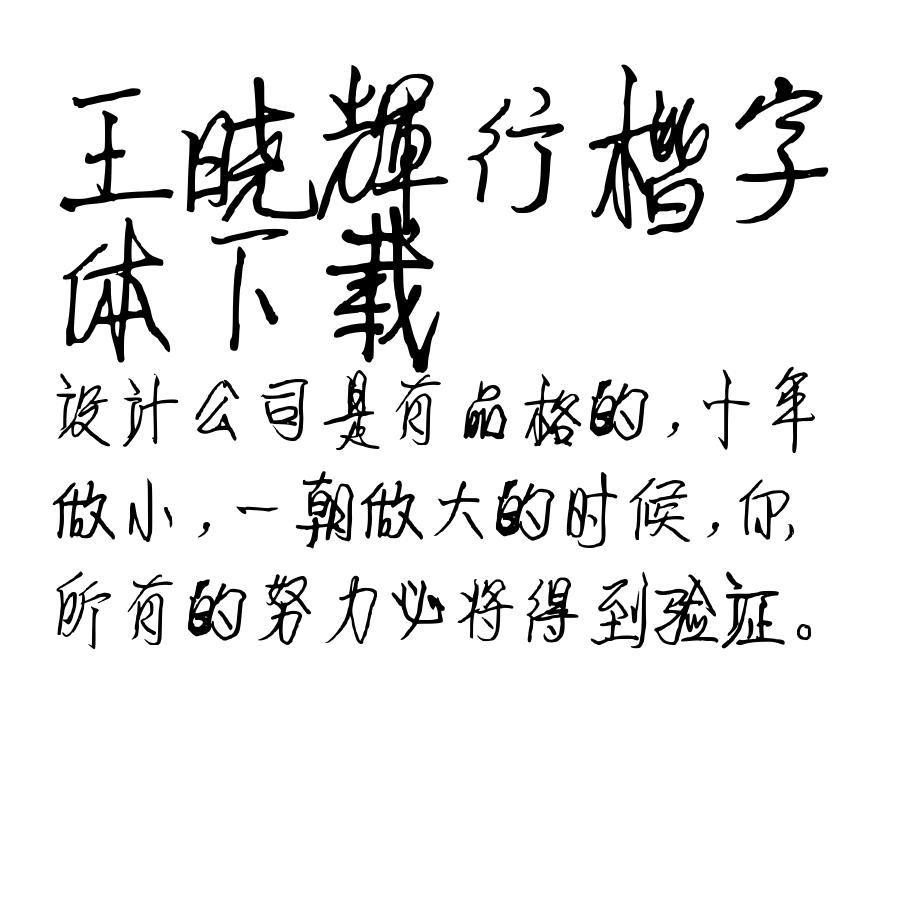 王晓辉行楷字
体下载
设计公司是有品格的,十年
做小,一朝做大的时候,你,
所有的努力必将得到验证。